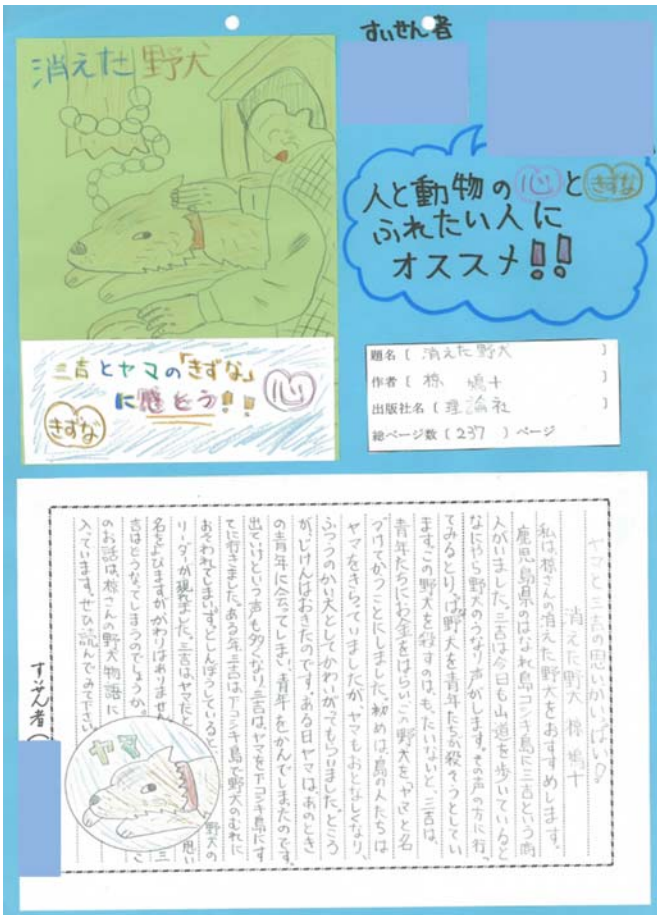 消えた野犬
すいせん者
人と動物の心ときずな
ふれたい人に
オススメ!!
三吉とヤマの「きずな」
に感どう!!
心
きずな
題名〔 消えた野犬 〕
作者〔 椋 鳩十 〕
出版社名〔 理論社 〕
総ページ数〔 237 〕ページ
ヤマと三吉の思いがいっぱい!
消えた野犬 椋 鳩十
私は、椋さんの消えた野犬をおすすめします。
鹿児島県のはなれ島コシキ島に三吉という商
人がいました。三吉は今日も山道を歩いていると
なにやら野犬のうなり声がします。その声の方に行っ
てみるとりっぱな野犬を青年たちが殺そうとしてい
ます。この野犬を殺すのは、もったいないと、三吉は、
青年たちにお金をはらいこの野犬を、「ヤマ」と名
づけてかうことにしました。初めは、島の人たちは
ヤマをきらっていましたが、ヤマもおとなしくなり、
ふつうのかい犬としてかわいがってもらいました。ところ
が、じけんはおきたのです。ある日ヤマは、あのとき
の青年に会ってしまい、青年をかんでしまたのです。
出ていけという声も多くなり、三吉は、ヤマを下コシキ島にす
てに行きました。ある年三吉は下コシキ島で野犬のむれに
おそわれてしまいます。どしんぼうしていると、野犬の
リーダーが現れました。三吉は、ヤマだと思い
名をよびますがかわりはありません。三
吉はどうなってしまうのでしょうか。こ
のお話は、椋さんの野犬物語に
入っています。ぜひ読んでみて下さい。
ヤマ
すいせん者